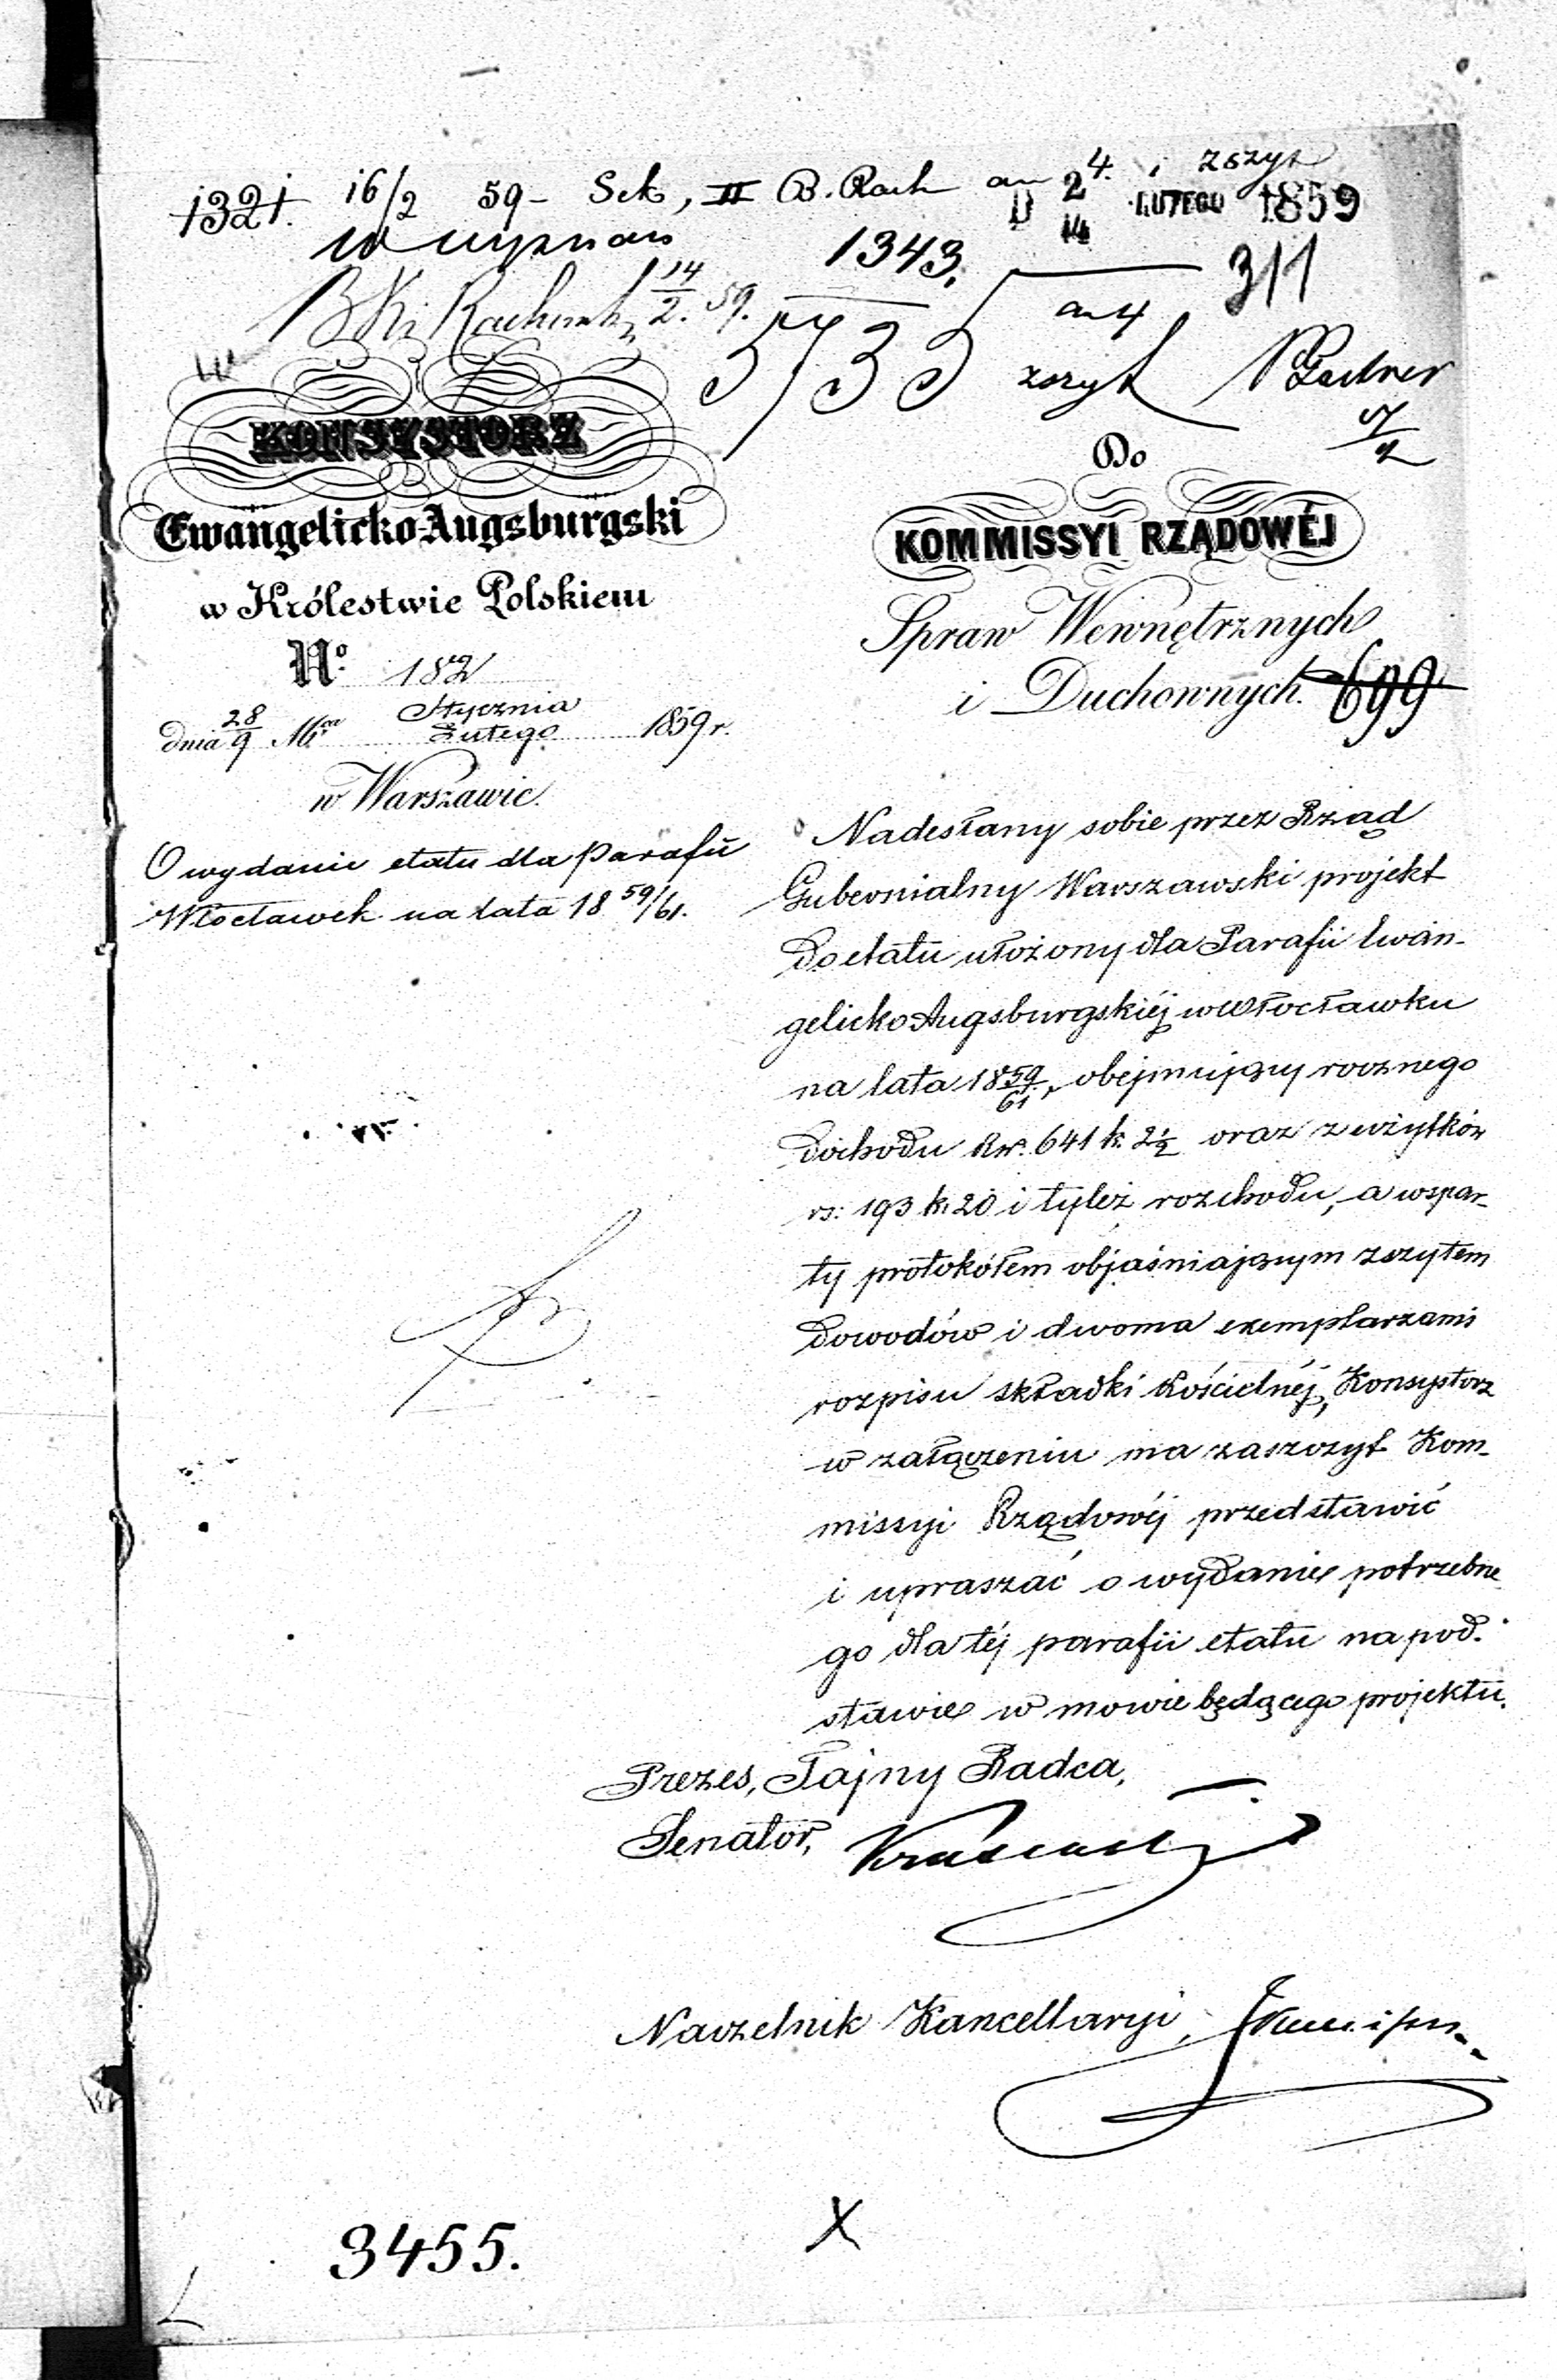 1321. 16/2 59 - Sek, II B. Rach an 4. i zszyt
D 2/14 LUTEGO 1859
w wyznan 1343. 311
14/2. 59. an 4
5733 zszyt
KONSYSTORZ
Ewangelicko-Augsburgski
w Królestwie Polskiem
No. 182
dnia 28/9 Mca Stycznia/Lutego 1859 r.
w Warszawie.
O wydanie etatu dla Parafii
Włocławek na lata 18 59/61.
Do
KOMMISSYI RZĄDOWÉJ
Spraw Wewnętrznych
i Duchownych. 699
Nadesłany sobie przez Rząd
Gubernialny Warszawski projekt
do etatu ułożony dla Parafii Ewan-
gelicko Augsburgskiéj w Włocławku
na lata 18 59/61, obejmujący rocznego
dochodu Rs. 641 k. 2½ oraz z użytków
rs: 193 k. 20 i tyleż rozchodu, a wspar-
ty protokółem objaśniającym zszytem
dowodów i dwoma exemplarzami
rozpisu składki kościelnéj, Konsystorz
w załączeniu ma zaszczyt Kom-
missyi Rządowéj przedstawić
i upraszać o wydanie potrzebne-
go dla téj parafii etatu na pod-
stawie w mowie będącego projektu.
Prezes, Tajny Radca,
Senator,
Naczelnik Kancellaryi,
3455.
X